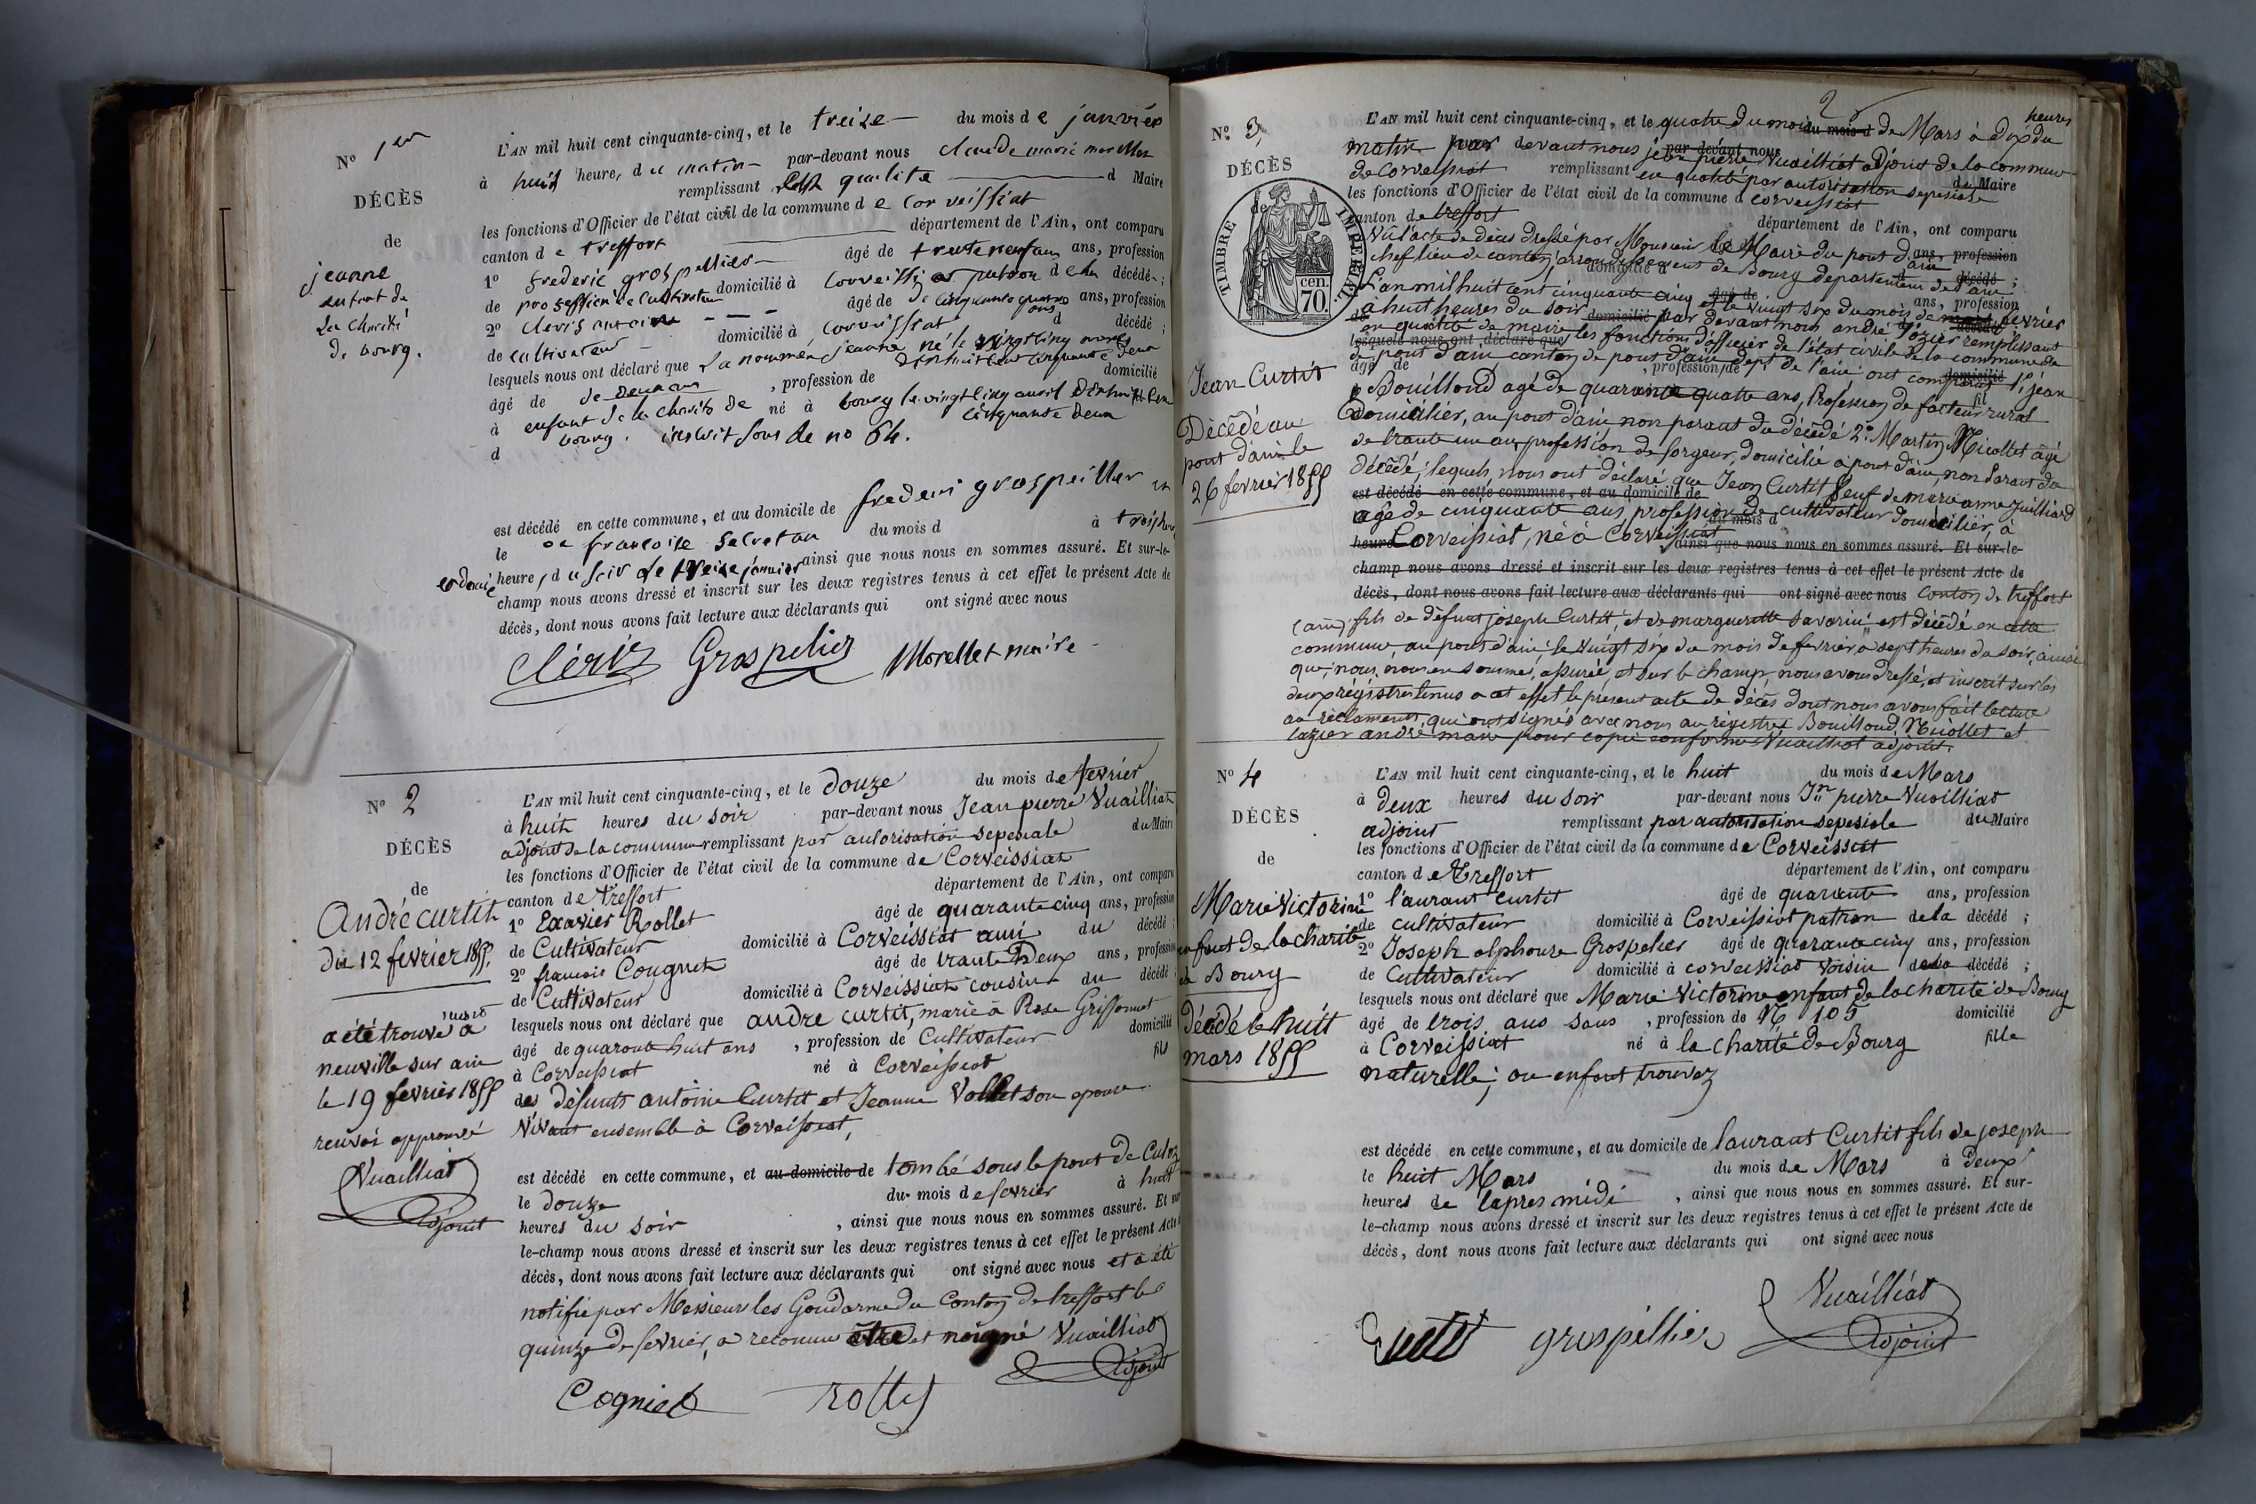 No 1er
DÉCÈS
de
jeanne
enfant de
La charité
de bourg.
L'AN mil huit cent cinquante-cinq, et le treize du mois de janvier
à huit heure, du matin par-devant nous claude marie morellet
remplissant qualite d Maire
les fonctions d'Officier de l'état civil de la commune de corveissiat
canton de treffort département de l'Ain, ont comparu
1o frederic grospellier âgé de trente neuf ans ans, profession
de profession de Cultivateur domicilié à corveissiat patron de la décédé ;
2o cleris antoine âgé de cinquante quatre ans, profession
de cultivateur domicilié à corveissiat d décédé ;
lesquels nous ont déclaré que La nommée jeanne né le vingt cinq
âgé de , profession de domicilié
à enfant de la charité de né à bourg le vingt cinq avril
d bourg. inscrit sous le no 64. cinquante deux
est décédé en cette commune, et au domicile de frederic grospellier
le françoise du mois d à trois
heure, du soir le treize janvier ainsi que nous nous en sommes assuré. Et sur-le-
champ nous avons dressé et inscrit sur les deux registres tenus à cet effet le présent Acte de
décès, dont nous avons fait lecture aux déclarants qui ont signé avec nous
Cleriz Grospelier Morellet maire
No 2
DÉCÈS
de
André curtit
du 12 fevrier 1855.
a été trouvé à
neuville sur ain
le 19 fevrier 1855
renvoi approuvé
Vuailliat
adjoint
L'AN mil huit cent cinquante-cinq, et le Douze du mois de fevrier
à huit heures du soir par-devant nous Jean pierre Vuailliat
adjoint de la commune remplissant par autorisation sepesiale du Maire
les fonctions d'Officier de l'état civil de la commune de Corveissiat
canton de treffort département de l'Ain, ont comparu
1o Exavier Rollet âgé de quarante cinq ans, profession
de Cultivateur domicilié à Corveissiat ami du décédé ;
2o francois Cougniet âgé de trante Deux ans, profession
de Cultivateur domicilié à Corveissiat cousin du décédé ;
lesquels nous ont déclaré que andré curtit, marié à Rose
âgé de quarante huit ans , profession de Cultivateur domicilié
à Corveissiat né à Corveissiat fils
des défunts antoine Curtit et Jeanne Vollet son epouse
Vivant ensemble à Corveissiat,
est décédé en cette commune, et au domicile de tombé sous le pont de
le Douze du mois de fevrier à huit
heures du soir , ainsi que nous nous en sommes assuré. Et sur-
le-champ nous avons dressé et inscrit sur les deux registres tenus à cet effet le présent Acte de
décès, dont nous avons fait lecture aux déclarants qui ont signé avec nous et a été
notifié par Messieurs les Gendarme du Canton de treffort le
quinze de fevrier, a reconnu être et Vuailliat
adjoint
Cogniet rollet
2
No 3
DÉCÈS
de
TIMBRE IMPERIAL
70 cen.
Jean Curtit
Décédé au
pont d'ain le
26 fevrier 1855
L'AN mil huit cent cinquante-cinq, et le quatre du mois du mois d de Mars à dix heures du
matin par devant nous par-devant nous jean pierre Vuailliat adjoint de la commune
de Corveissiat remplissant en qualité par autorisation sepesiale du Maire
les fonctions d'Officier de l'état civil de la commune d corveissiat
canton de treffort département de l'Ain, ont comparu
Vu l'acte de décès dressé par Monsieur le Maire du pont d'ain ans, profession
chef lieu de canton, arrondissement de Bourg departement de l'ain domicilié à décédé ;
L'an mil huit cent cinquante cinq et le vingt six du mois de fevrier âgé de ans, profession
à huit heures du soir domicilié par devant nous andré lozier remplissant
en qualité de maire les fonctions d'officier de l'état civile de la commune de lesquels nous ont déclaré que
de pont d'ain canton de pont d'ain dept de l'ain ont comparut 1o jean âgé de , profession de domicilié
Bouilloud agé de quarante quatre ans, Profession de facteur rural fil
Domicilier, au pont d'ain non parant du décédé 2o Martin Nicollet âgé
de trante un an, profession de forgeur, domicilié à pont d'ain, non Parant du
décédé, lequels, nous ont déclaré que Jean Curtit Veuf de marie anne Juilliard
est décédé en cette commune, et au domicile de
agé de cinquante ans profession de cultivateur domicilier, à du mois d
heure Corveissiat, né à Corveissiat ainsi que nous nous en sommes assuré. Et sur-le-
champ nous avons dressé et inscrit sur les deux registres tenus à cet effet le présent Acte de
décès, dont nous avons fait lecture aux déclarants qui ont signé avec nous canton de treffort
(ain) fils de défunt joseph Curtit, et de marguerite savarin est décédé en cette
commune, au pont d'ain, le Vingt six du mois de fevrier à sept heures du soir, ainsi
que, nous, nous en sommes, assuré, et sur le champ, nous avons dressé, et inscrit sur les
deux régistres tenus a cet effet le present acte de décès dont nous avons fait lecture
au réclaments, qui ont signés avec nous au régistre, Bouilloud, Nicollet et
lozier andré maire pour copie conforme Vuailliat adjoint.
No 4
DÉCÈS
de
Marie Victorine
enfant de la charité
de Bourg
Décédé le huit
mars 1855
L'AN mil huit cent cinquante-cinq, et le huit du mois de Mars
à deux heures du soir par-devant nous Jn pierre Vuailliat
adjoint remplissant par autorisation sepesiale du Maire
les fonctions d'Officier de l'état civil de la commune de Corveissiat
canton de Treffort département de l'Ain, ont comparu
1o l'aurant curtit âgé de quarante ans, profession
de cultivateur domicilié à Corveissiat patron de la décédé ;
2o Joseph alphonse Grospelier âgé de quarante cinq ans, profession
de Cultivateur domicilié à corveissiat voisin de la décédé ;
lesquels nous ont déclaré que Marie Victorine enfant de la charité de Bourg
âgé de trois ans sans , profession de No 105 domicilié
à Corveissiat né à la charité de Bourg fille
naturelle, ou enfant trouvez
est décédé en cette commune, et au domicile de laurant Curtit fils de joseph
le huit Mars du mois de Mars à deux
heures de l'apres midi , ainsi que nous nous en sommes assuré. Et sur-
le-champ nous avons dressé et inscrit sur les deux registres tenus à cet effet le présent Acte de
décès, dont nous avons fait lecture aux déclarants qui ont signé avec nous
Vuailliat
adjoint
Curtit grospellier